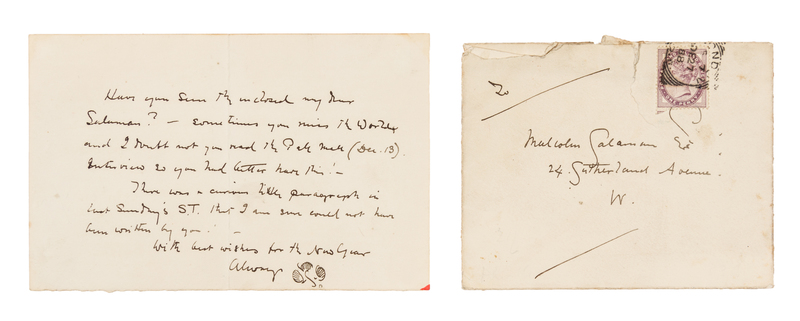 Have you seen the enclosed my dear
Salaman? – sometimes you miss the World &
and I doubt not you read the Pall Mall (Dec. 13).
Interview so you had better have this! –
There was a curious little paragraph in
last Sunday's S.T. that I am sure could not have
been written by you! –
With best wishes for the New Year
Always
To
Malcolm Salaman Esq
24. Sutherland Avenue.
W.